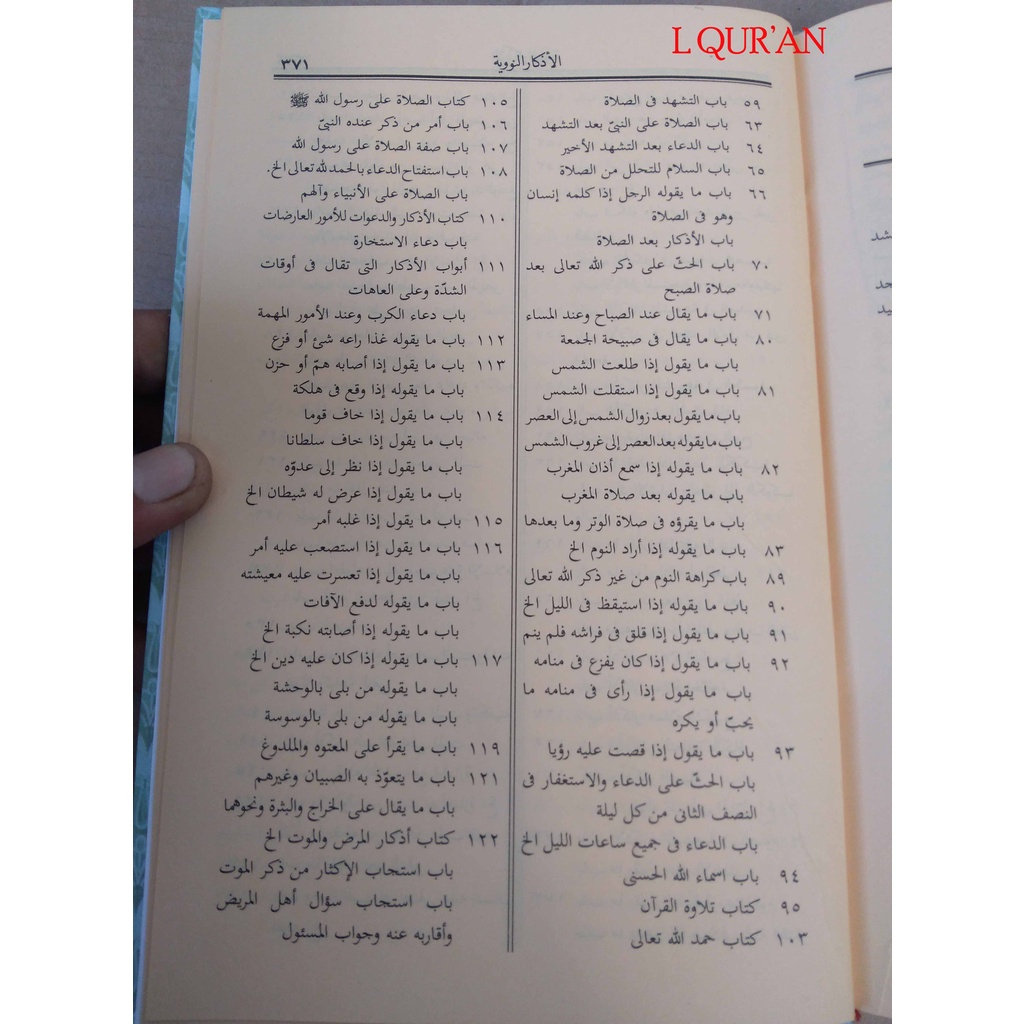 L QUR'AN
الأذكار النووية
٣٧١
٥٩ باب التشهد فى الصلاة
٦٣ باب الصلاة على النبىّ بعد التشهد
٦٤ باب الدعاء بعد التشهد الأخير
٦٥ باب السلام للتحلل من الصلاة
٦٦ باب ما يقوله الرجل إذا كلمه إنسان
وهو فى الصلاة
باب الأذكار بعد الصلاة
٧٠ باب الحثّ على ذكر الله تعالى بعد
صلاة الصبح
٧١ باب ما يقال عند الصباح وعند المساء
٨٠ باب ما يقال فى صبيحة الجمعة
باب ما يقول إذا طلعت الشمس
٨١ باب ما يقول إذا استقلت الشمس
باب ما يقول بعد زوال الشمس إلى العصر
باب ما يقوله بعد العصر إلى غروب الشمس
٨٢ باب ما يقوله إذا سمع أذان المغرب
باب ما يقوله بعد صلاة المغرب
باب ما يقرؤه فى صلاة الوتر وما بعدها
٨٣ باب ما يقوله إذا أراد النوم الخ
٨٩ باب كراهة النوم من غير ذكر الله تعالى
٩٠ باب ما يقوله إذا استيقظ فى الليل الخ
٩١ باب ما يقول إذا قلق فى فراشه فلم ينم
٩٢ باب ما يقول إذا كان يفزع فى منامه
باب ما يقول إذا رأى فى منامه ما
يحبّ أو يكره
٩٣ باب ما يقول إذا قصت عليه رؤيا
باب الحثّ على الدعاء والاستغفار فى
النصف الثانى من كل ليلة
باب الدعاء فى جميع ساعات الليل الخ
٩٤ باب اسماء الله الحسنى
٩٥ كتاب تلاوة القرآن
١٠٣ كتاب حمد الله تعالى
١٠٥ كتاب الصلاة على رسول الله ﷺ
١٠٦ باب أمر من ذكر عنده النبىّ
١٠٧ باب صفة الصلاة على رسول الله
١٠٨ باب استفتاح الدعاء بالحمد لله تعالى الخ.
باب الصلاة على الأنبياء وآلهم
١١٠ كتاب الأذكار والدعوات للأمور العارضات
باب دعاء الاستخارة
١١١ أبواب الأذكار التى تقال فى أوقات
الشدّة وعلى العاهات
باب دعاء الكرب وعند الأمور المهمة
١١٢ باب ما يقوله غذا راعه شئ أو فزع
١١٣ باب ما يقول إذا أصابه همّ أو حزن
باب ما يقوله إذا وقع فى هلكة
١١٤ باب ما يقول إذا خاف قوما
باب ما يقول إذا خاف سلطانا
باب ما يقول إذا نظر إلى عدوّه
باب ما يقول إذا عرض له شيطان الخ
١١٥ باب ما يقول إذا غلبه أمر
١١٦ باب ما يقول إذا استصعب عليه أمر
باب ما يقول إذا تعسرت عليه معيشته
باب ما يقوله لدفع الآفات
باب ما يقوله إذا أصابته نكبة الخ
١١٧ باب ما يقوله إذا كان عليه دين الخ
باب ما يقوله من بلى بالوحشة
باب ما يقوله من بلى بالوسوسة
١١٩ باب ما يقرأ على المعتوه والملدوغ
١٢١ باب ما يتعوّذ به الصبيان وغيرهم
باب ما يقال على الخراج والبثرة ونحوهما
١٢٢ كتاب أذكار المرض والموت الخ
باب استحباب الإكثار من ذكر الموت
باب استحباب سؤال أهل المريض
وأقاربه عنه وجواب المسئول